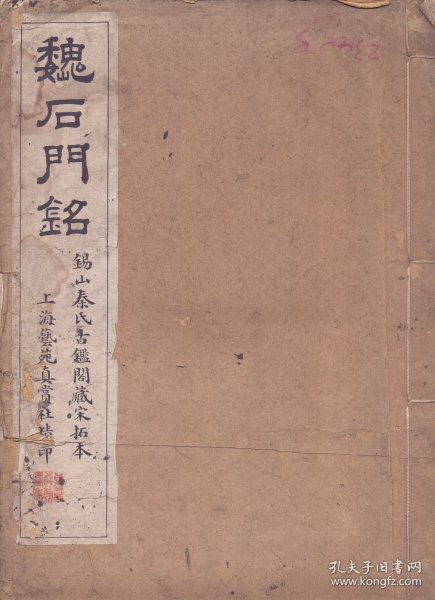 魏石門銘
錫山秦氏古鑑閣藏宋拓本
上海藝苑真賞社印
孔夫子旧书网
www.kongfz.com